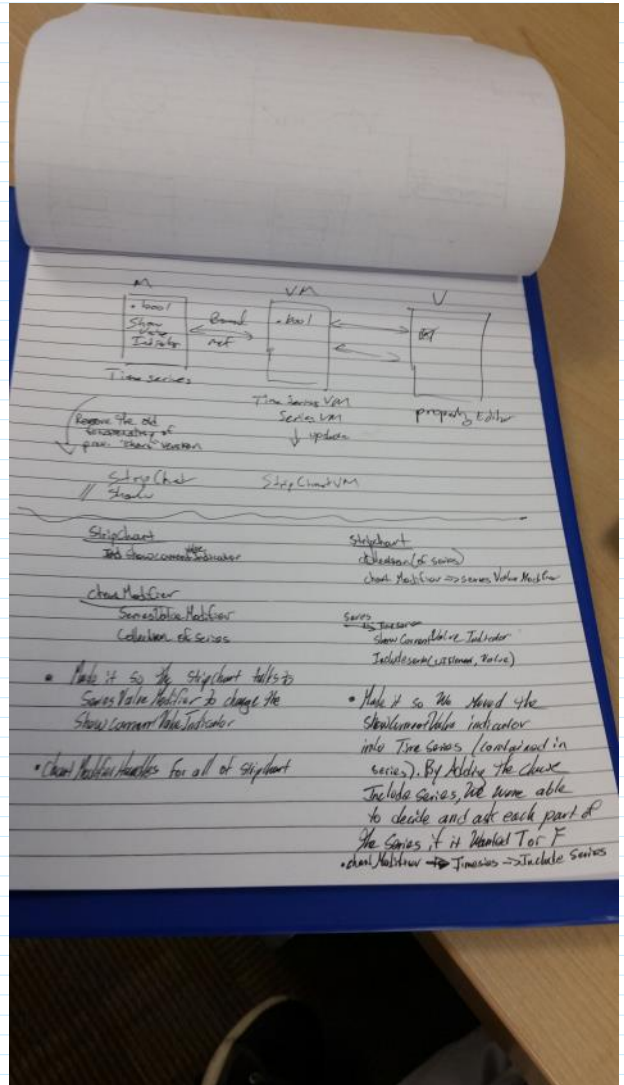 M VM V
• bool
Show
Value
Indicator
Bound
ref
• bool
Time series
Time Series VM
Series VM
↓ update
property Editor
Remove the old
of
prev. "chart" version
StripChart
// Show
StripChartVM
StripChart
show current Value Indicator
chartModifier
SeriesValueModifier
Collection of Series
• Made it so the stripchart talks to
SeriesValueModifier to change the
ShowCurrentValueIndicator
• chartModifier Handles for all of stripchart
Stripchart
collection (of series)
chart Modifier => series Value Modifier
Series
=> Timeseries
show Current Value Indicator
Include series(, Value)
• Make it so We Moved the
showCurrentValue indicator
into Time series (contained in
series). By Adding the
Include series, We were able
to decide and ask each part of
the Series if it Wanted T or F
• chartModifier => Timeseries => Include Series